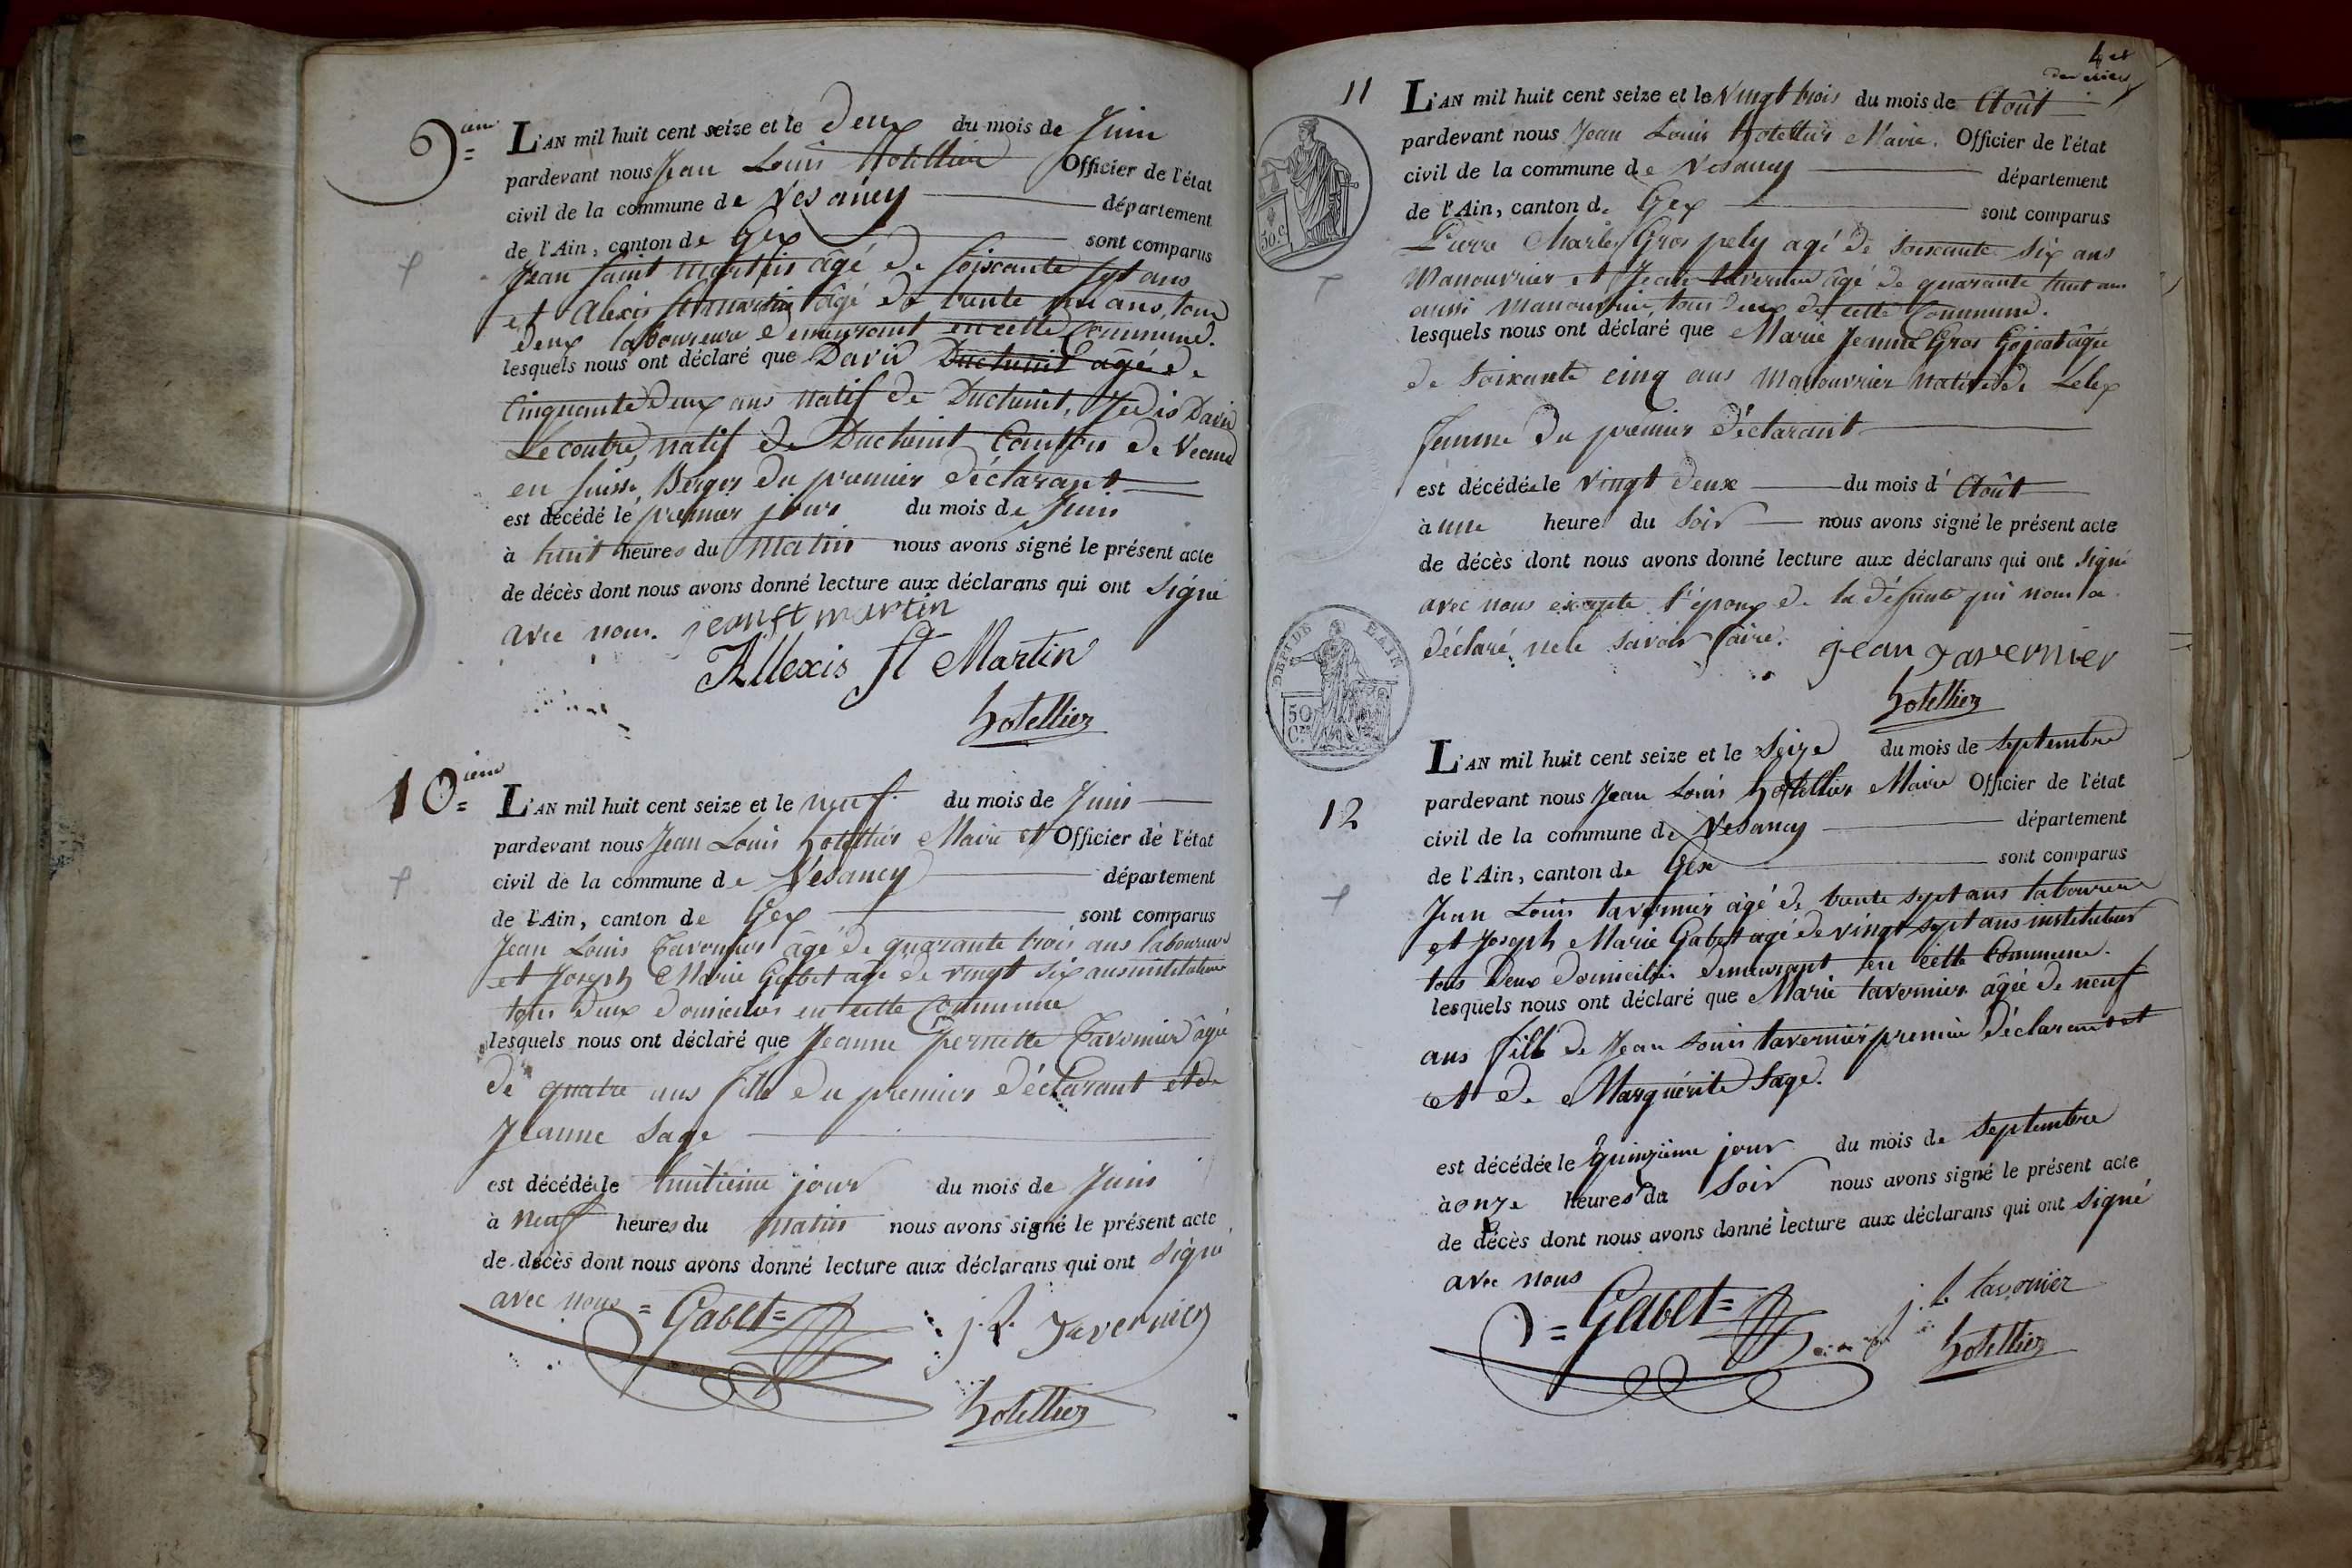 9ieme=
L'AN mil huit cent seize et le Deux du mois de Juin
pardevant nous Jean Louis Hotellier Officier de l'état
civil de la commune de Vesancy département
de l'Ain, canton de Gex sont comparus
Jean Saint Martin âgé de soixante sept ans
et Alexis St martin âgé de trente ans, tous
deux laboureurs demeurant en cette Commune.
lesquels nous ont déclaré que David agé de
Cinquante deux ans natif de David
Lecoultre, natif de Canton de
en suisse, Berger du premier déclarant
est décédé le premier jour du mois de Juin
à huit heures du matin nous avons signé le présent acte
de décès dont nous avons donné lecture aux déclarans qui ont signé
avec nous. jean st martin
Allexis St Martin
hotellier
10ieme=
L'AN mil huit cent seize et le neuf du mois de Juin
pardevant nous Jean Louis hotellier Maire et Officier de l'état
civil de la commune de Vésancy département
de l'Ain, canton de Gex sont comparus
Jean Louis Tavernier âgé de quarante trois ans laboureur
et Joseph Marie Gabet âgé de vingt six ans instituteur
tous deux domiciliés en cette Commune
lesquels nous ont déclaré que Jeanne Pernette Tavernier âgée
de quatre ans fille du premier déclarant et de
Jeanne Sage
est décédée le huitieme jour du mois de Juin
à neuf heures du matin nous avons signé le présent acte
de décès dont nous avons donné lecture aux déclarans qui ont signé
avec nous =Gabet= j. L. Tavernier
hotellier
4 et
dernier
11
L'AN mil huit cent seize et le Vingt trois du mois de Août
pardevant nous Jean Louis hotellier Maire. Officier de l'état
civil de la commune de Vesancy département
de l'Ain, canton de Gex sont comparus
Pierre Charles Gros pely agé de soixante six ans
Manouvrier et Jean tavernier âgé de quarante huit ans
aussi manouvrier, tous deux de cette Commune.
lesquels nous ont déclaré que Marie Jeanne Gros Gojeat âgée
de soixante cinq ans manouvrier native de Lelex
femme du premier déclarant
est décédée le vingt deux du mois d' Août
à une heure du soir nous avons signé le présent acte
de décès dont nous avons donné lecture aux déclarans qui ont signé
avec nous excepte l'époux de la défunte qui nous a
déclaré ne le savoir faire. jean Tavernier
hotellier
DEP. DE L'AIN
50
C.
50 c
12
L'AN mil huit cent seize et le Seize du mois de septembre
pardevant nous Jean Louis hotellier Maire Officier de l'état
civil de la commune de Vesancy département
de l'Ain, canton de Gex sont comparus
Jean Louis tavernier âgé de trente sept ans laboureur
et Joseph Marie Gabet agé de vingt sept ans instituteur
tous deux domiciliés demeurant en cette Commune.
lesquels nous ont déclaré que Marie tavernier âgée de neuf
ans fille de Jean Louis tavernier premier déclarant et
et de Marguérite Sage.
est décédée le quinzième jour du mois de septembre
à onze heures du soir nous avons signé le présent acte
de décès dont nous avons donné lecture aux déclarans qui ont signé
avec nous =Gabet= j. L. tavernier
hotellier